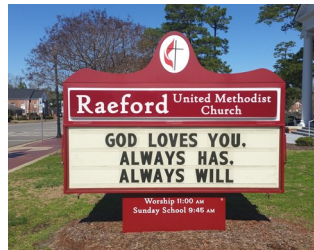 Raeford United Methodist
Church
GOD LOVES YOU.
ALWAYS HAS.
ALWAYS WILL
Worship 11:00 AM
Sunday School 9:45 AM